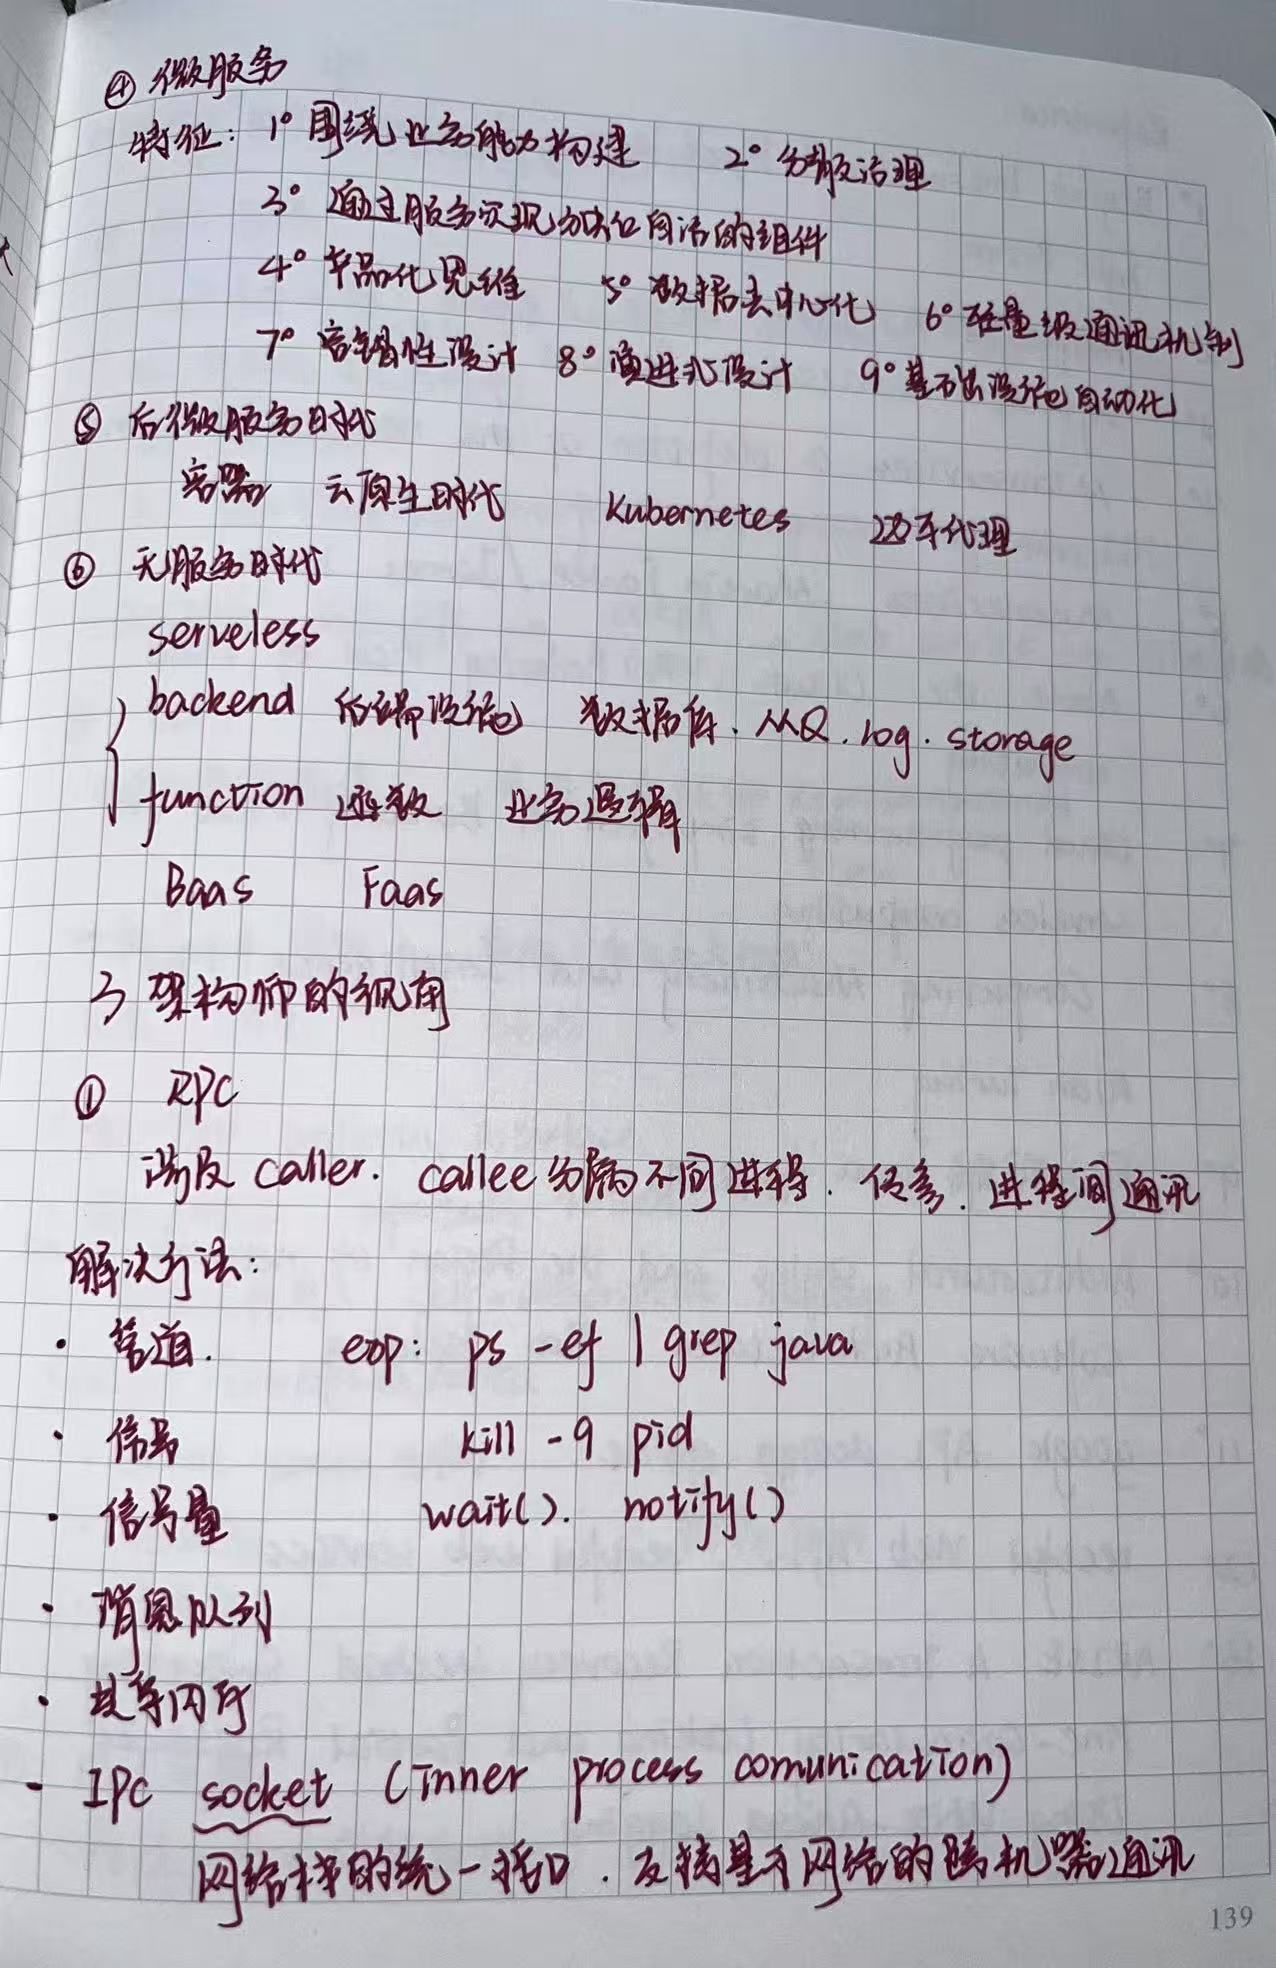 ④ 微服务
特征: 1° 围绕业务能力构建 2° 分散治理
3° 通过服务实现独立自治的组件
4° 产品化思维 5° 数据去中心化 6° 轻量级通讯机制
7° 容错性设计 8° 演进式设计 9° 基础设施自动化
⑤ 后微服务时代
容器 云原生时代 Kubernetes 边车代理
⑥ 无服务时代
serveless
backend 后端设施 数据库. MQ. log. storage
function 函数 业务逻辑
Baas Faas
3 架构师的视角
① RPC
涉及 caller. callee 分属不同进程. 传参. 进程间通讯
解决方法:
· 管道. exp: ps -ef | grep java
· 信号 kill -9 pid
· 信号量 wait(). notify()
· 消息队列
· 共享内存
- IPC socket (inner process comunication)
网络栈的统一接口. 支持基于网络的跨机器通讯
139